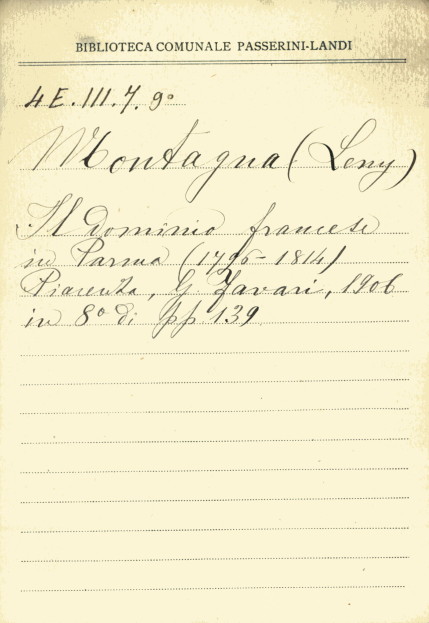 BIBLIOTECA COMUNALE PASSERINI-LANDI
4E.III.7.9°
Montagna (Leny)
Il dominio francese
in Parma (1796-1814)
Piacenza, G. Favari, 1906
in 8° di pp 139